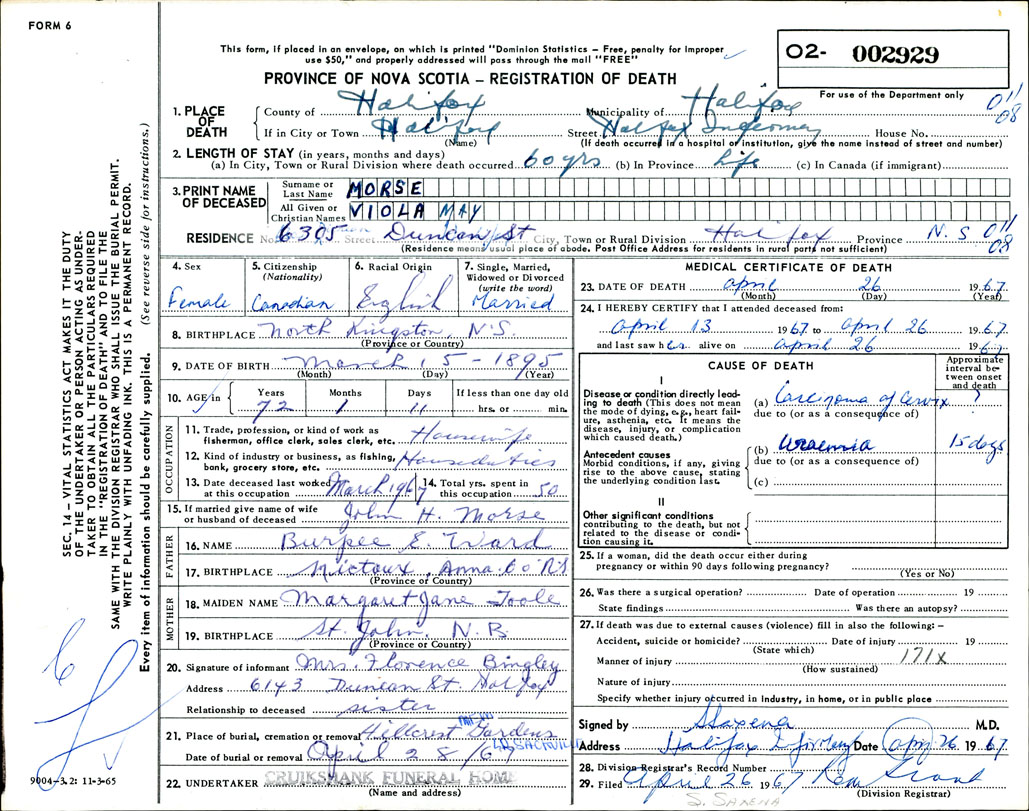 FORM 6
This form, if placed in an envelope, on which is printed "Dominion Statistics – Free, penalty for improper
use $50," and properly addressed will pass through the mail "FREE"
O2- 002929
For use of the Department only
PROVINCE OF NOVA SCOTIA – REGISTRATION OF DEATH
011
08
1. PLACE OF DEATH
County of Halifax Municipality of Halifax
If in City or Town Halifax Street Halifax Infirmary House No.
(Name) (If death occurred in a hospital or institution, give the name instead of street and number)
2. LENGTH OF STAY (in years, months and days)
(a) In City, Town or Rural Division where death occurred 60 yrs (b) In Province life (c) In Canada (if immigrant)
3. PRINT NAME OF DECEASED
Surname or Last Name MORSE
All Given or Christian Names VIOLA MAY
RESIDENCE No. 6395 Street Duncan St City, Town or Rural Division Halifax Province N. S 011
08
(Residence means usual place of abode. Post Office Address for residents in rural parts not sufficient)
4. Sex
Female
5. Citizenship
(Nationality)
Canadian
6. Racial Origin
English
7. Single, Married,
Widowed or Divorced
(write the word)
Married
8. BIRTHPLACE North Kingston, N.S.
(Province or Country)
9. DATE OF BIRTH March 15 – 1895
(Month) (Day) (Year)
10. AGE in Years Months Days If less than one day old
72 1 11 hrs. or min.
OCCUPATION
11. Trade, profession, or kind of work as
fisherman, office clerk, sales clerk, etc. Housewife
12. Kind of industry or business, as fishing,
bank, grocery store, etc. Houseduties
13. Date deceased last worked
at this occupation March 1967
14. Total yrs. spent in
this occupation 50
15. If married give name of wife
or husband of deceased John H. Morse
FATHER
16. NAME Burpee E. Ward
17. BIRTHPLACE Nictaux, Anna. Co N.S
(Province or Country)
MOTHER
18. MAIDEN NAME Margaret Jane Toole
19. BIRTHPLACE St. John, N.B
(Province or Country)
20. Signature of informant Mrs. Florence Bingley
Address 6143 Duncan St. Halifax
Relationship to deceased sister
21. Place of burial, cremation or removal Hillcrest Gardens
Date of burial or removal April 28/67 SACKVILLE
22. UNDERTAKER CRUIKSHANK FUNERAL HOME
(Name and address)
MEDICAL CERTIFICATE OF DEATH
23. DATE OF DEATH April 26 1967
(Month) (Day) (Year)
24. I HEREBY CERTIFY that I attended deceased from:
April 13 1967 to April 26 1967
and last saw her alive on April 26 1967
CAUSE OF DEATH
Approximate
interval be-
tween onset
and death
I
Disease or condition directly lead-
ing to death (This does not mean
the mode of dying, e.g., heart fail-
ure, asthenia, etc. It means the
disease, injury, or complication
which caused death.)
(a) Carcinoma of Cervix ?
due to (or as a consequence of)
Antecedent causes
Morbid conditions, if any, giving
rise to the above cause, stating
the underlying condition last.
(b) Uraemia 15 days
due to (or as a consequence of)
(c)
II
Other significant conditions
contributing to the death, but not
related to the disease or condi-
tion causing it.
25. If a woman, did the death occur either during
pregnancy or within 90 days following pregnancy?
(Yes or No)
26. Was there a surgical operation? Date of operation 19
State findings Was there an autopsy?
27. If death was due to external causes (violence) fill in also the following: –
Accident, suicide or homicide? Date of injury 19
(State which)
Manner of injury 171X
(How sustained)
Nature of injury
Specify whether injury occurred in Industry, in home, or in public place
Signed by S Saxena M.D.
Address Halifax Infirmary Date April 26 1967
28. Division Registrar's Record Number
29. Filed April 26 1967
(Division Registrar)
S. SAXENA
9004-3.2: 11-3-65
SEC. 14 – VITAL STATISTICS ACT MAKES IT THE DUTY
OF THE UNDERTAKER OR PERSON ACTING AS UNDER-
TAKER TO OBTAIN ALL THE PARTICULARS REQUIRED
IN THE "REGISTRATION OF DEATH" AND TO FILE THE
SAME WITH THE DIVISION REGISTRAR WHO SHALL ISSUE THE BURIAL PERMIT.
WRITE PLAINLY WITH UNFADING INK. THIS IS A PERMANENT RECORD.
Every item of information should be carefully supplied. (See reverse side for instructions.)